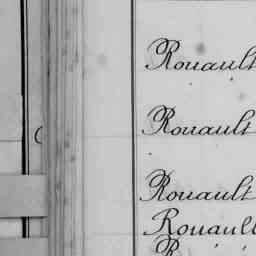 Rouault
Rouault
Rouault
Rouault